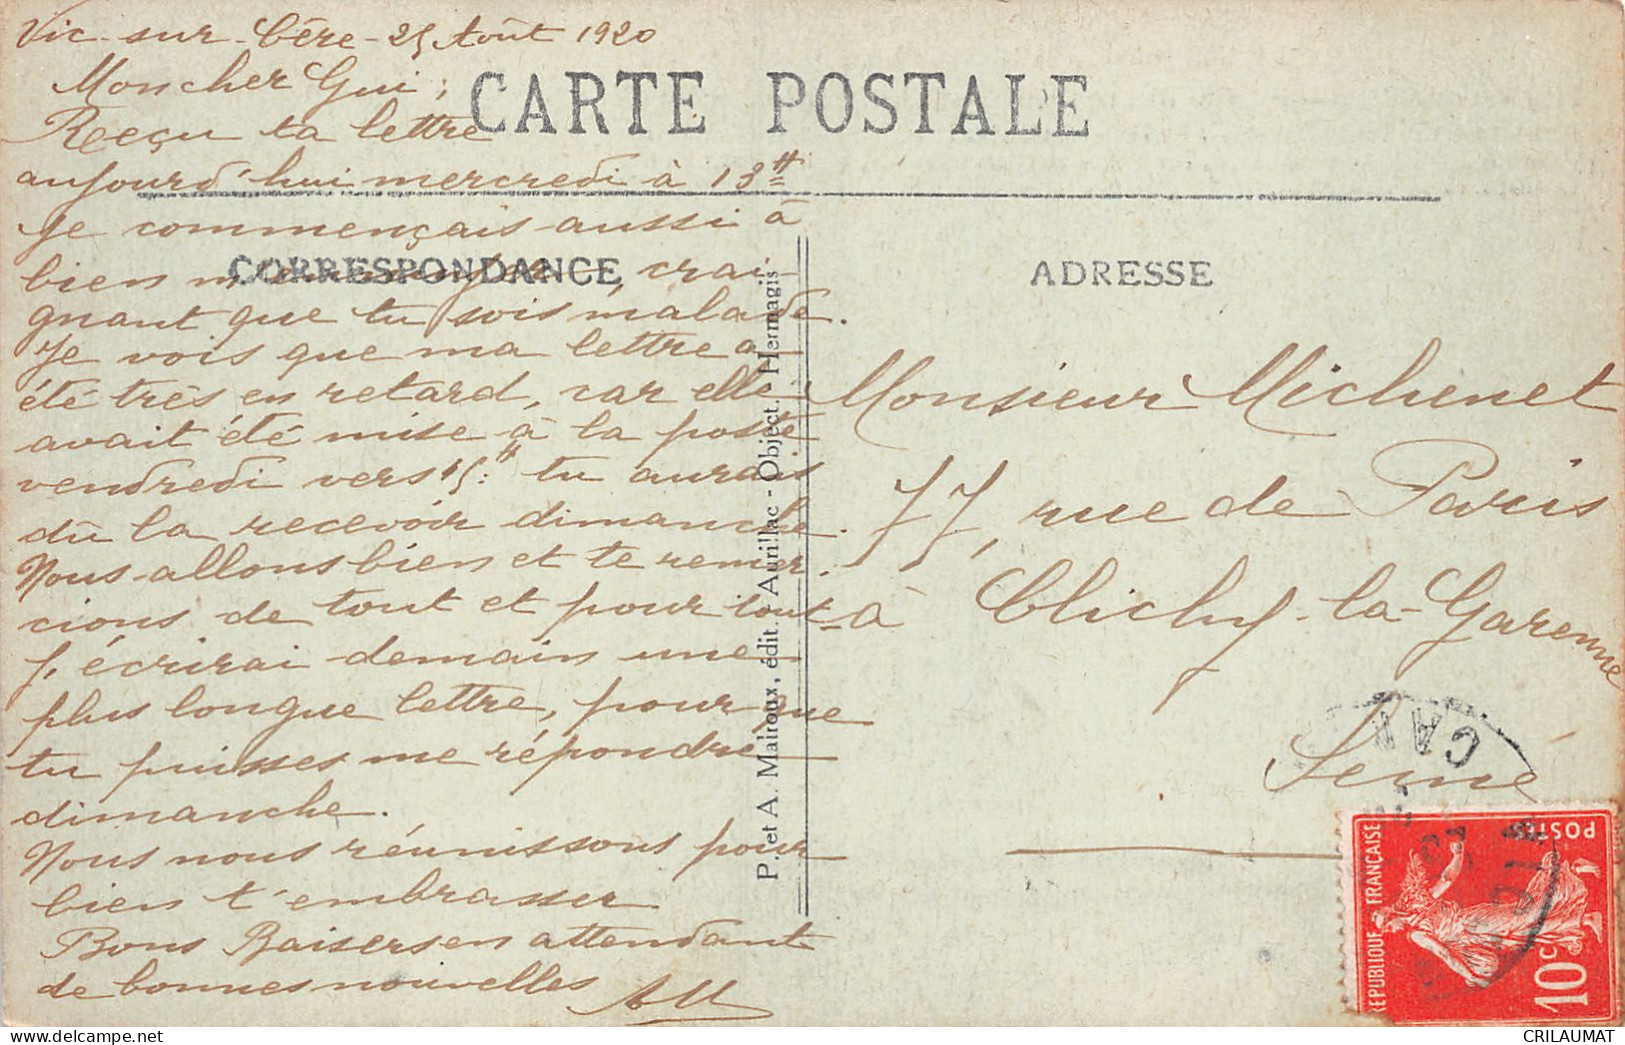 Vic-sur-Cère-25 Août 1920
Mon cher Gui;
CARTE POSTALE
Reçu ta lettre
aujourd'hui mercredi à 13H
Je commençais aussi à
CORRESPONDANCE
ADRESSE
bien , crai-
gnant que tu sois malade.
Je vois que ma lettre a
été très en retard, car elle
avait été mise à la poste
vendredi vers 15H tu aurais
dû la recevoir dimanche.
Nous allons bien et te remer-
cions de tout et pour tout
J'écrirai demain une
plus longue lettre, pour que
tu puisses me répondre
dimanche.
Nous nous réunissons pour
bien t'embrasser
Bons Baisers en attendant
de bonnes nouvelles
P. et A. Mairoux, édit. Aurillac - Object. Hermagis
Monsieur Michenet
77, rue de Paris
à Clichy-la-Garenne
Seine
CAN
REPUBLIQUE FRANÇAISE
POSTES
10c
CRILAUMAT